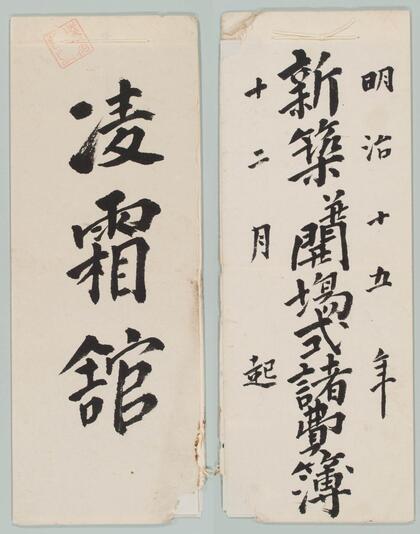 明治十五年
新築并開場式諸費簿
十二月起
凌霜舘